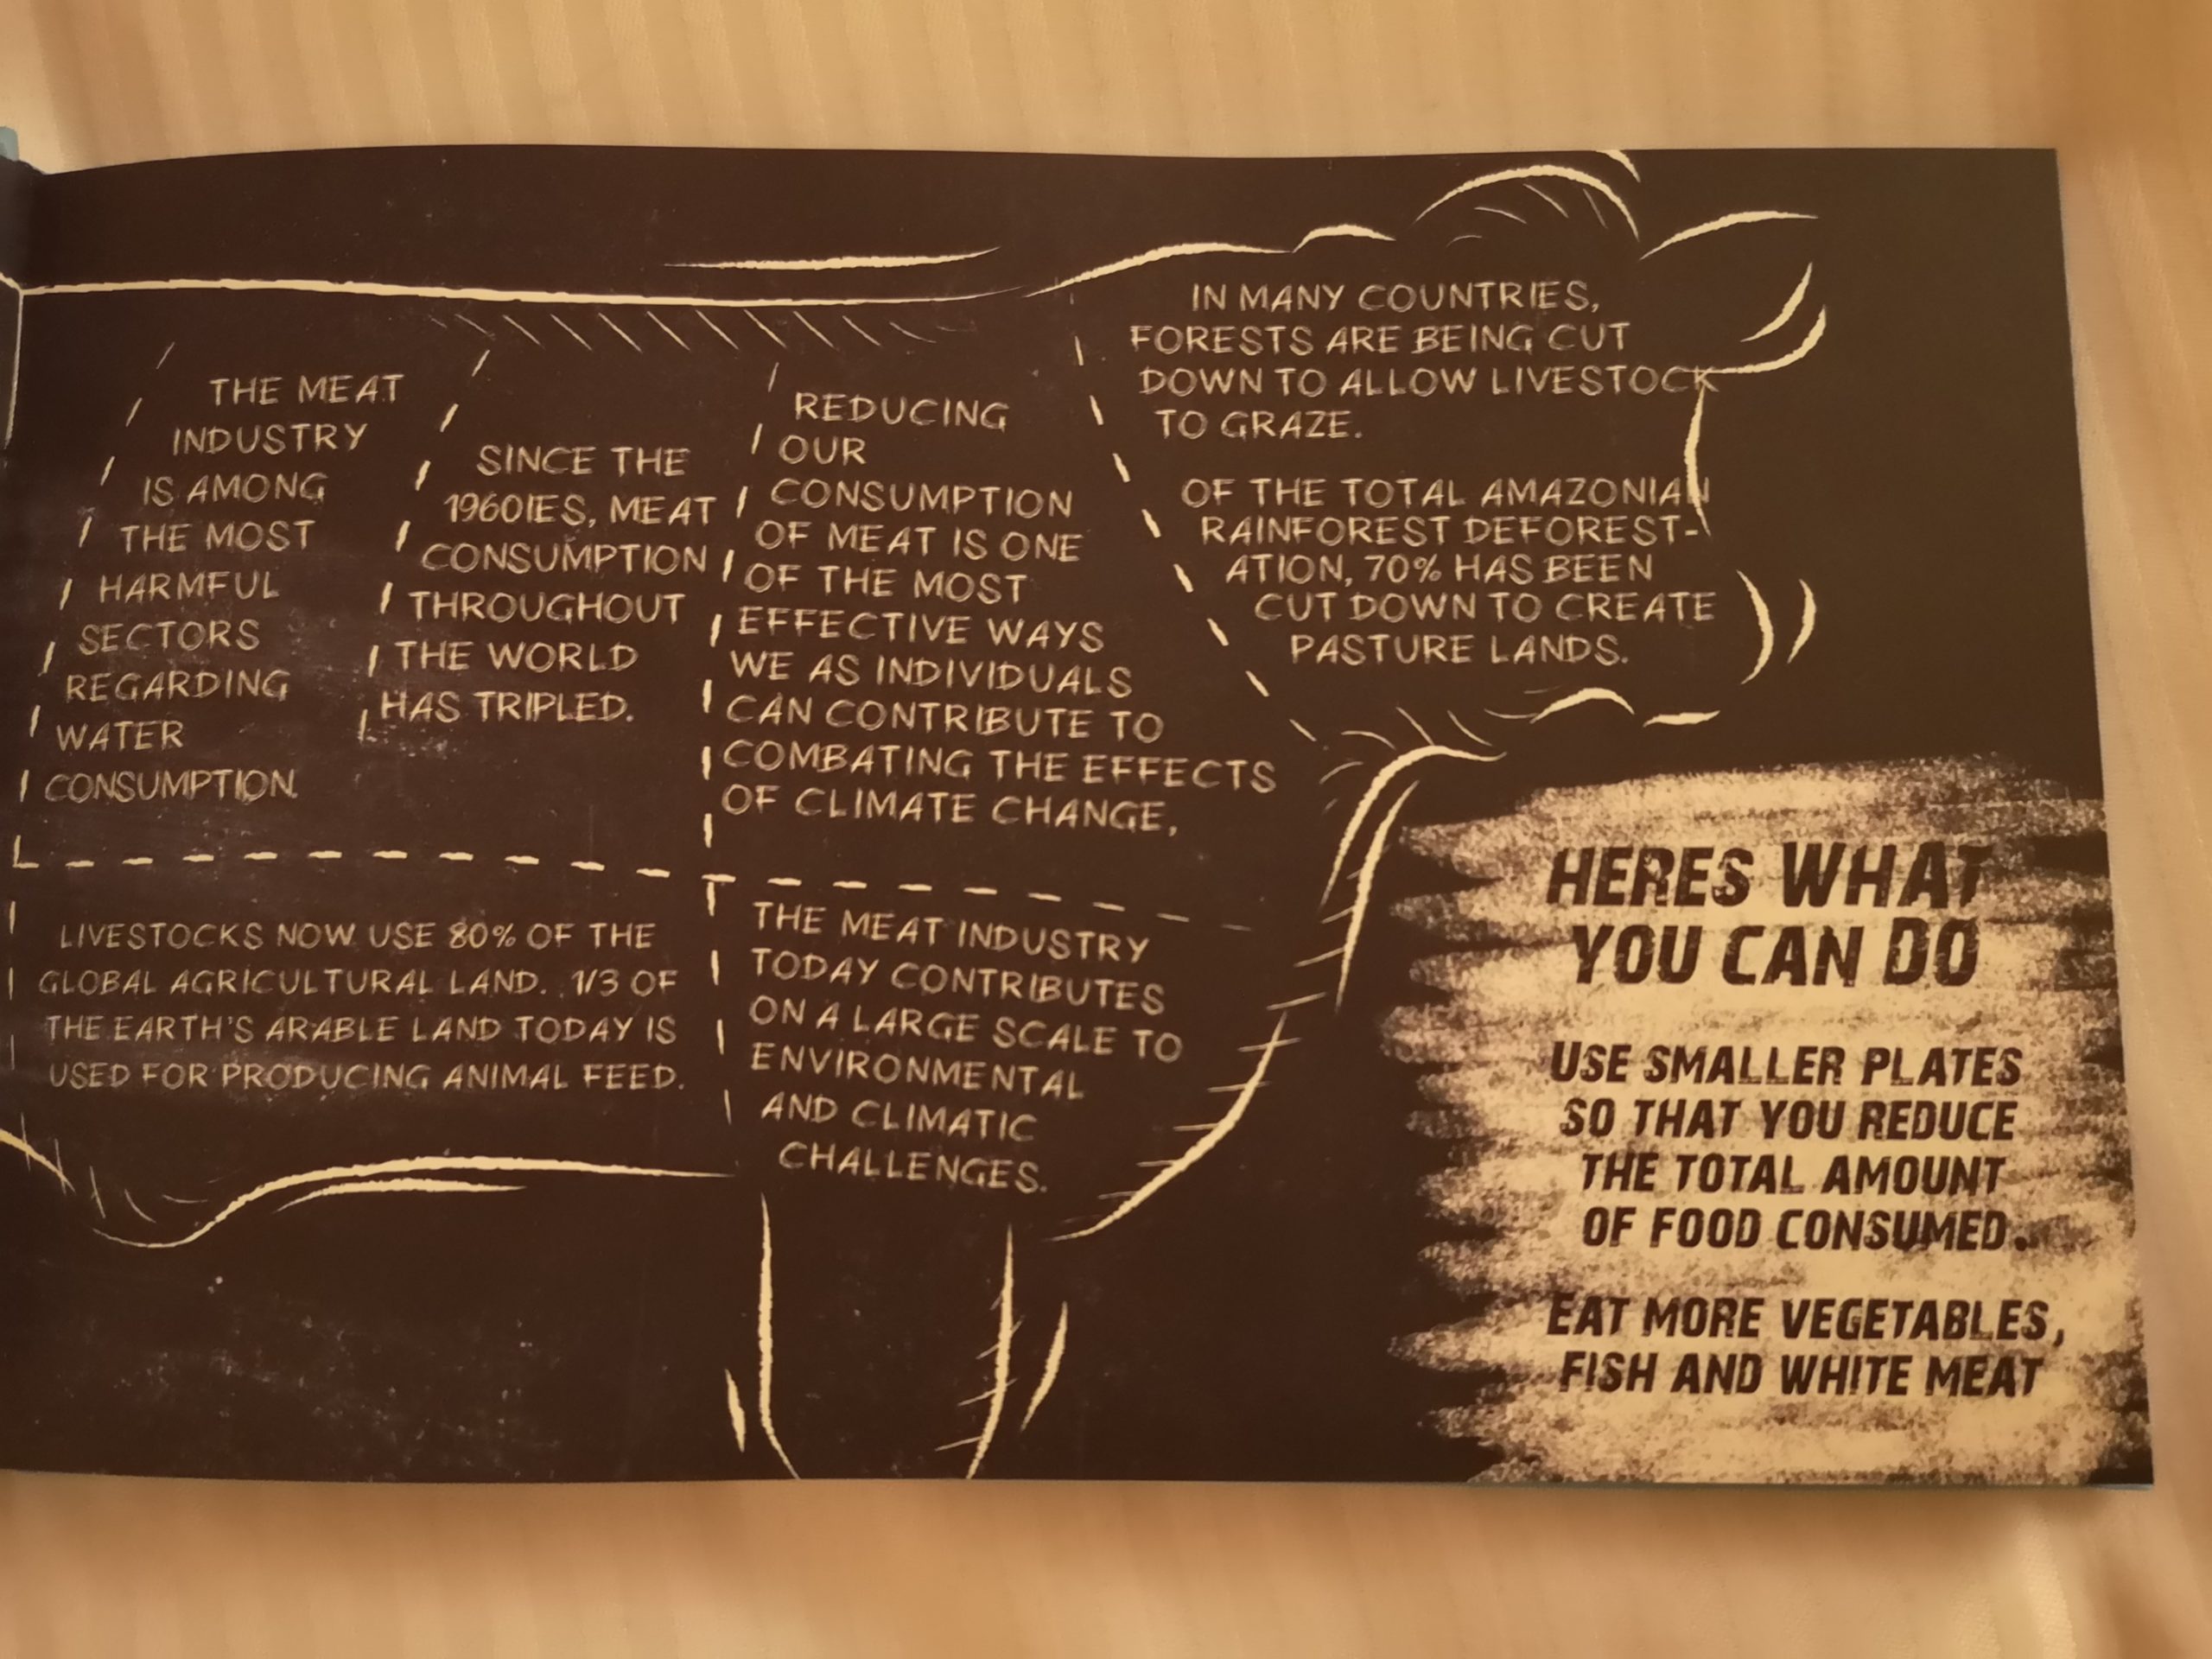 THE MEAT
INDUSTRY
IS AMONG
THE MOST
HARMFUL
SECTORS
REGARDING
WATER
CONSUMPTION.
SINCE THE
1960IES, MEAT
CONSUMPTION
THROUGHOUT
THE WORLD
HAS TRIPLED.
REDUCING
OUR
CONSUMPTION
OF MEAT IS ONE
OF THE MOST
EFFECTIVE WAYS
WE AS INDIVIDUALS
CAN CONTRIBUTE TO
COMBATING THE EFFECTS
OF CLIMATE CHANGE,
IN MANY COUNTRIES,
FORESTS ARE BEING CUT
DOWN TO ALLOW LIVESTOCK
TO GRAZE.
OF THE TOTAL AMAZONIAN
RAINFOREST DEFOREST-
ATION, 70% HAS BEEN
CUT DOWN TO CREATE
PASTURE LANDS.
LIVESTOCKS NOW USE 80% OF THE
GLOBAL AGRICULTURAL LAND. 1/3 OF
THE EARTH'S ARABLE LAND TODAY IS
USED FOR PRODUCING ANIMAL FEED.
THE MEAT INDUSTRY
TODAY CONTRIBUTES
ON A LARGE SCALE TO
ENVIRONMENTAL
AND CLIMATIC
CHALLENGES.
HERES WHAT
YOU CAN DO
USE SMALLER PLATES
SO THAT YOU REDUCE
THE TOTAL AMOUNT
OF FOOD CONSUMED.
EAT MORE VEGETABLES,
FISH AND WHITE MEAT